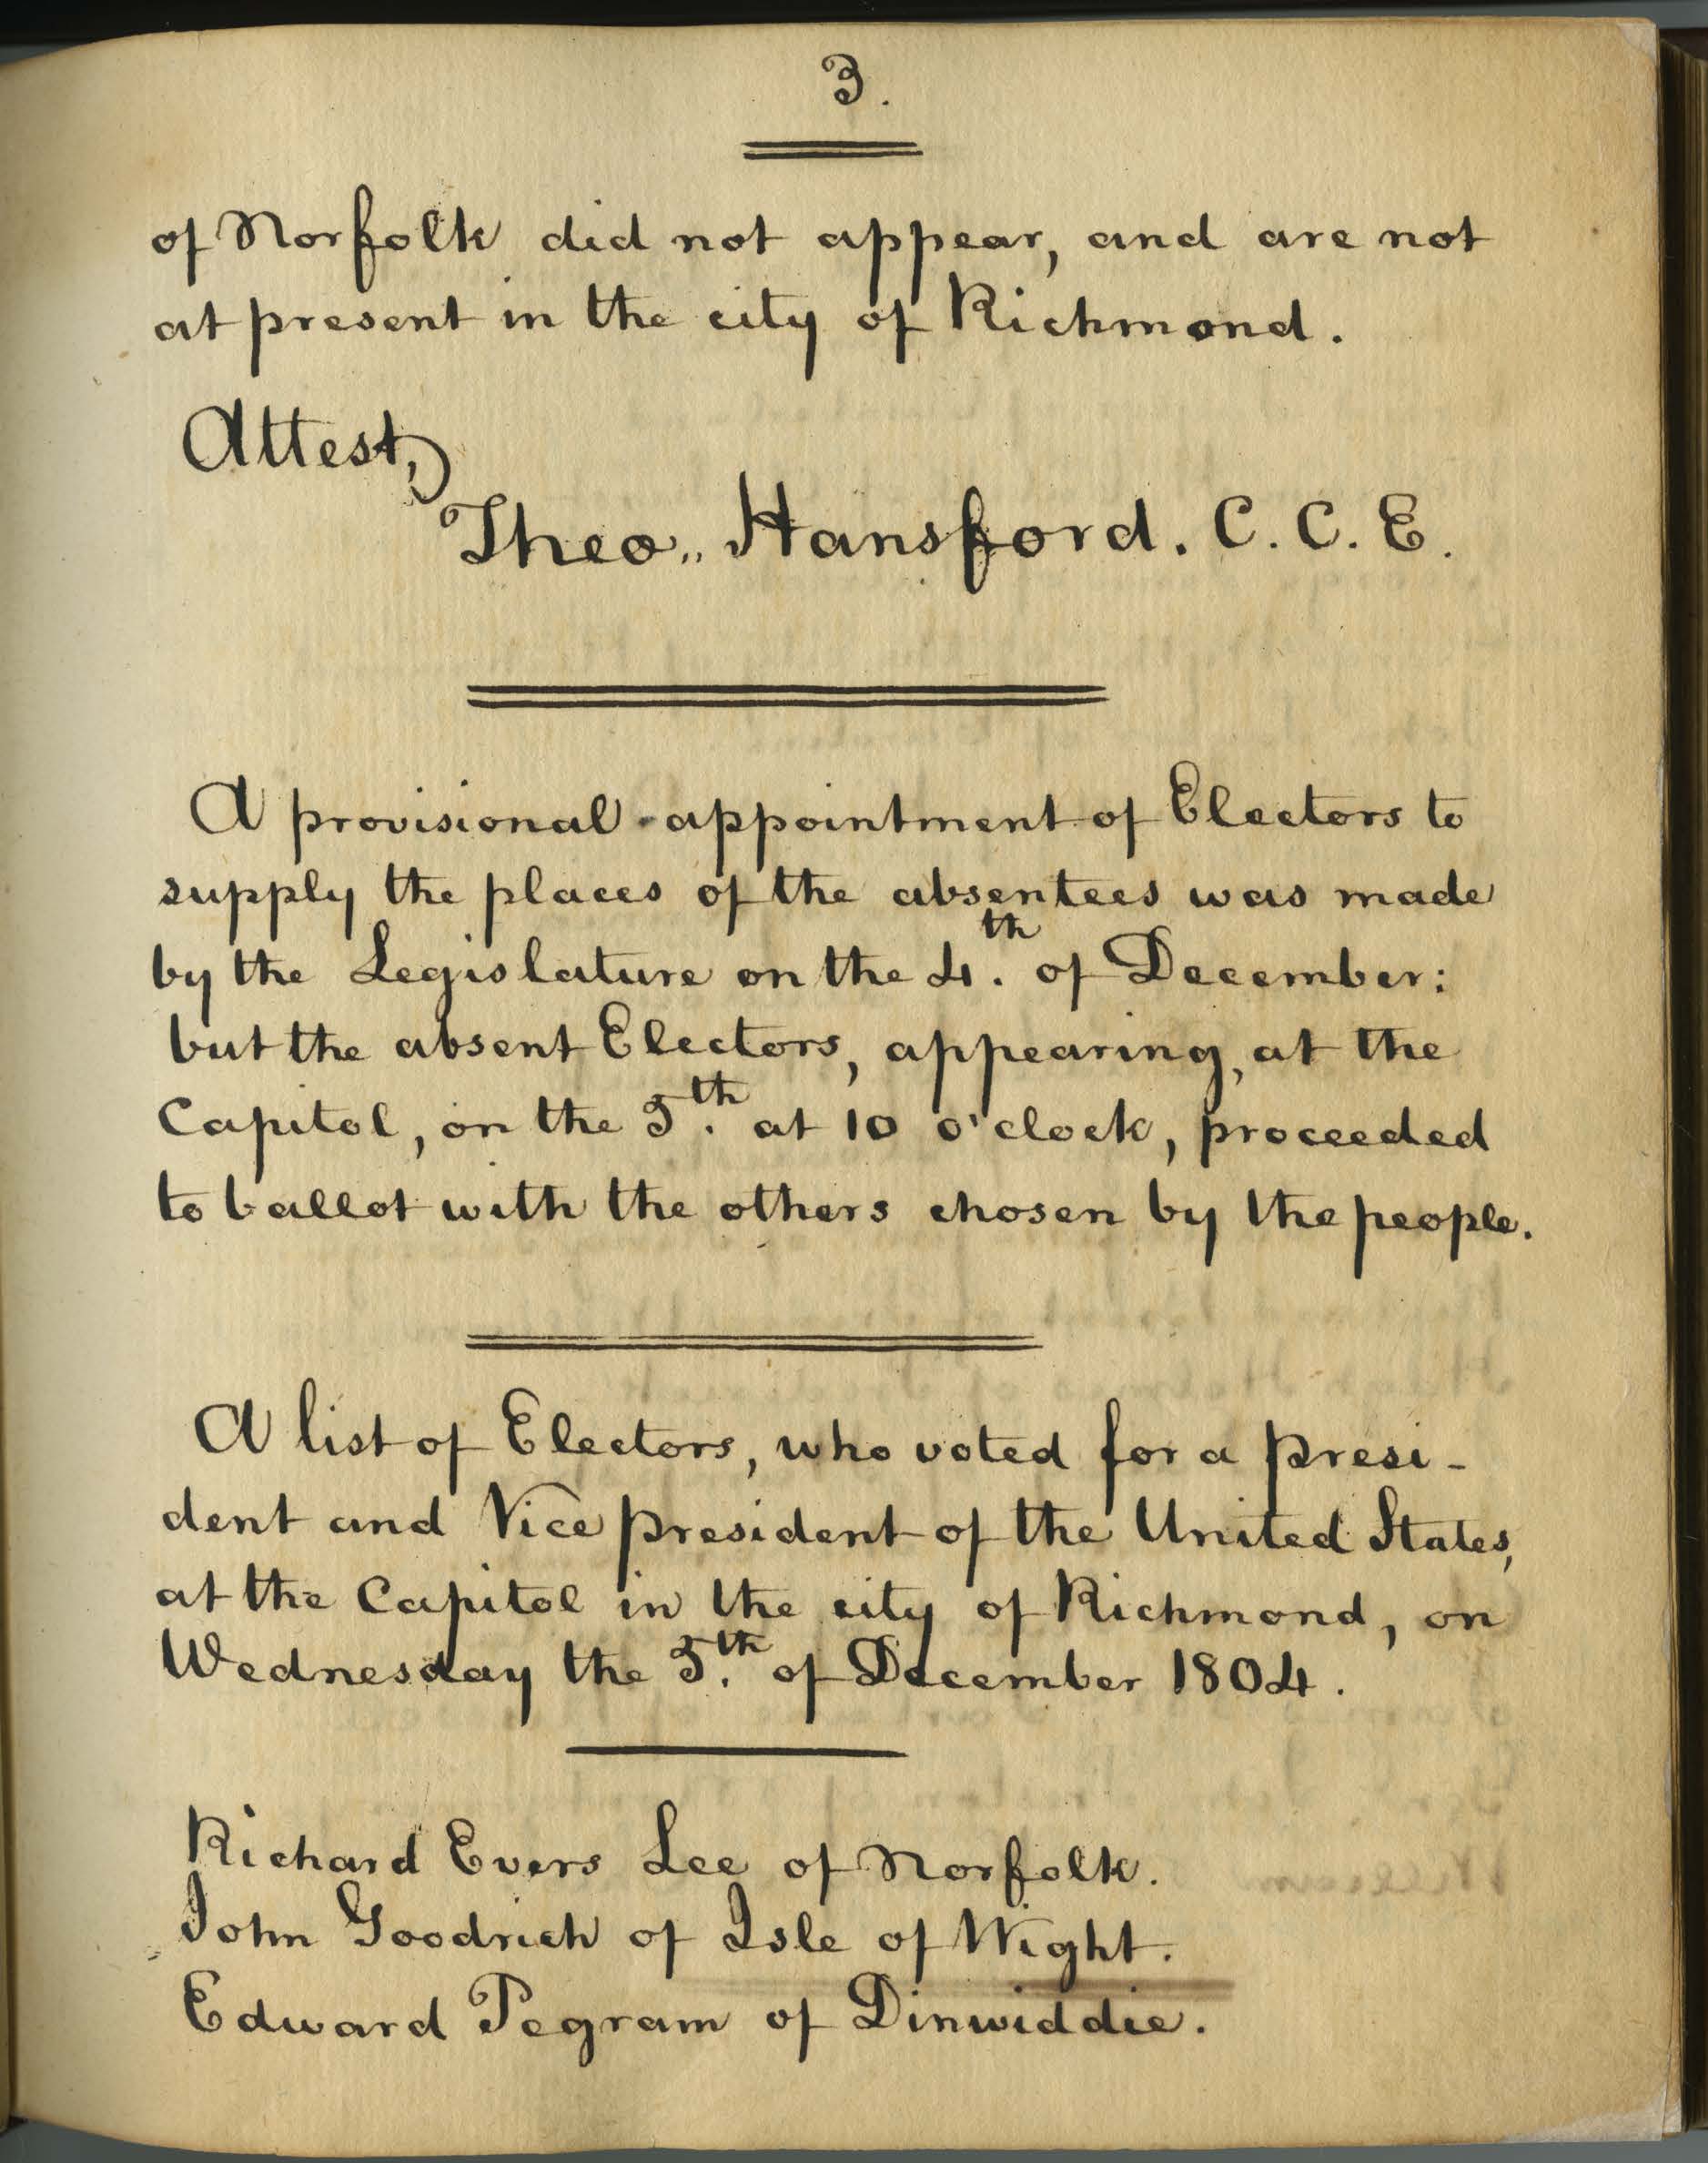 3.
of Norfolk did not appear, and are not
at present in the city of Richmond.
Attest,
Theo,, Hansford. C. C. E.
A provisional appointment of Electors to
supply the places of the absentees was made
by the Legislature on the 4.th of December:
but the absent Electors, appearing, at the
Capitol, on the 5th. at 10 o'clock, proceeded
to ballot with the others chosen by the people.
A list of Electors, who voted for a presi-
dent and Vice president of the United States,
at the Capitol in the city of Richmond, on
Wednesday the 5.th of December 1804.
Richard Evers Lee of Norfolk.
John Goodrich of Isle of Wight.
Edward Pegram of Dinwiddie.